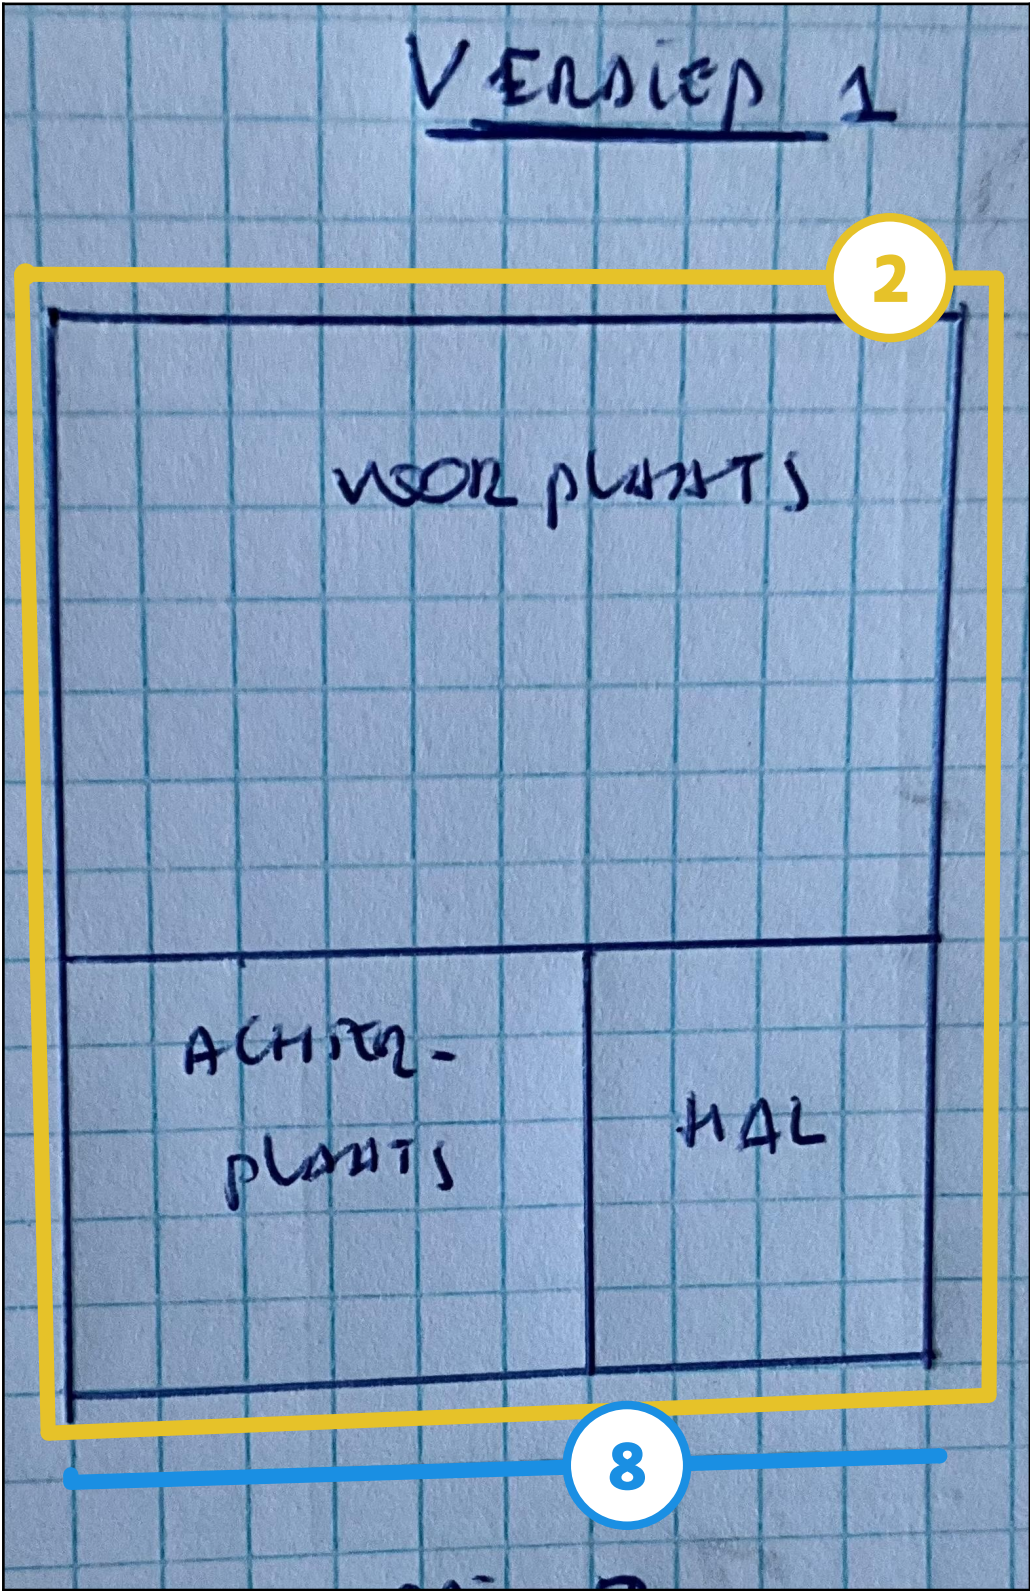 VERDIEP 1
2
VOORPLAATS
ACHTER-
PLAATS
HAL
8